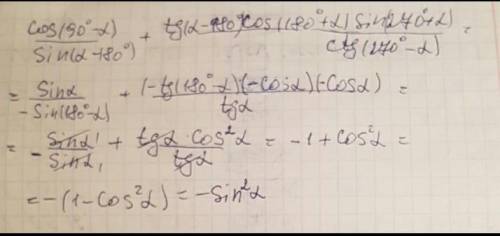 cos(90°-α)/sin(α-180°) + tg(α-180°)cos(180°+α)sin(270°+α)/ctg(270°-α) =
= sinα/-sin(180°-α) + (-tg(180°-α)(-cosα)(-cosα)/tgα =
= -sinα/sinα + tgα·cos²α/tgα = -1+cos²α =
= -(1-cos²α) = -sin²α